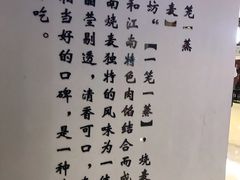 笼一蒸
麦】
坊“【一笼一蒸】，烧麦
和江南特色肉馅结合而成
南烧麦独特的风味为一体
丽莹剔透，清香可口，
相当好的口碑，是一种
吃。